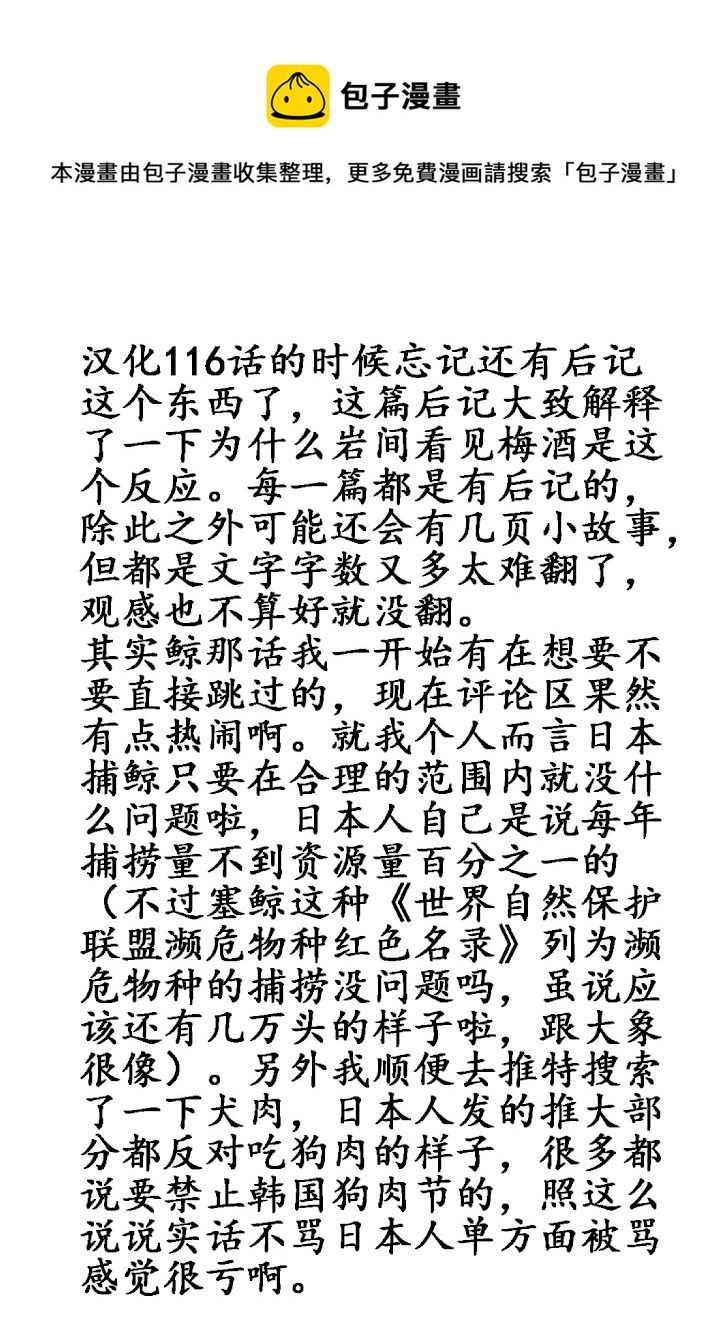 包子漫畫
本漫畫由包子漫畫收集整理，更多免費漫画請搜索「包子漫畫」
汉化116话的时候忘记还有后记
这个东西了，这篇后记大致解释
了一下为什么岩间看见梅酒是这
个反应。每一篇都是有后记的，
除此之外可能还会有几页小故事，
但都是文字字数又多太难翻了，
观感也不算好就没翻。
其实鲸那话我一开始有在想要不
要直接跳过的，现在评论区果然
有点热闹啊。就我个人而言日本
捕鲸只要在合理的范围内就没什
么问题啦，日本人自己是说每年
捕捞量不到资源量百分之一的
（不过塞鲸这种《世界自然保护
联盟濒危物种红色名录》列为濒
危物种的捕捞没问题吗，虽说应
该还有几万头的样子啦，跟大象
很像）。另外我顺便去推特搜索
了一下犬肉，日本人发的推大部
分都反对吃狗肉的样子，很多都
说要禁止韩国狗肉节的，照这么
说说实话不骂日本人单方面被骂
感觉很亏啊。